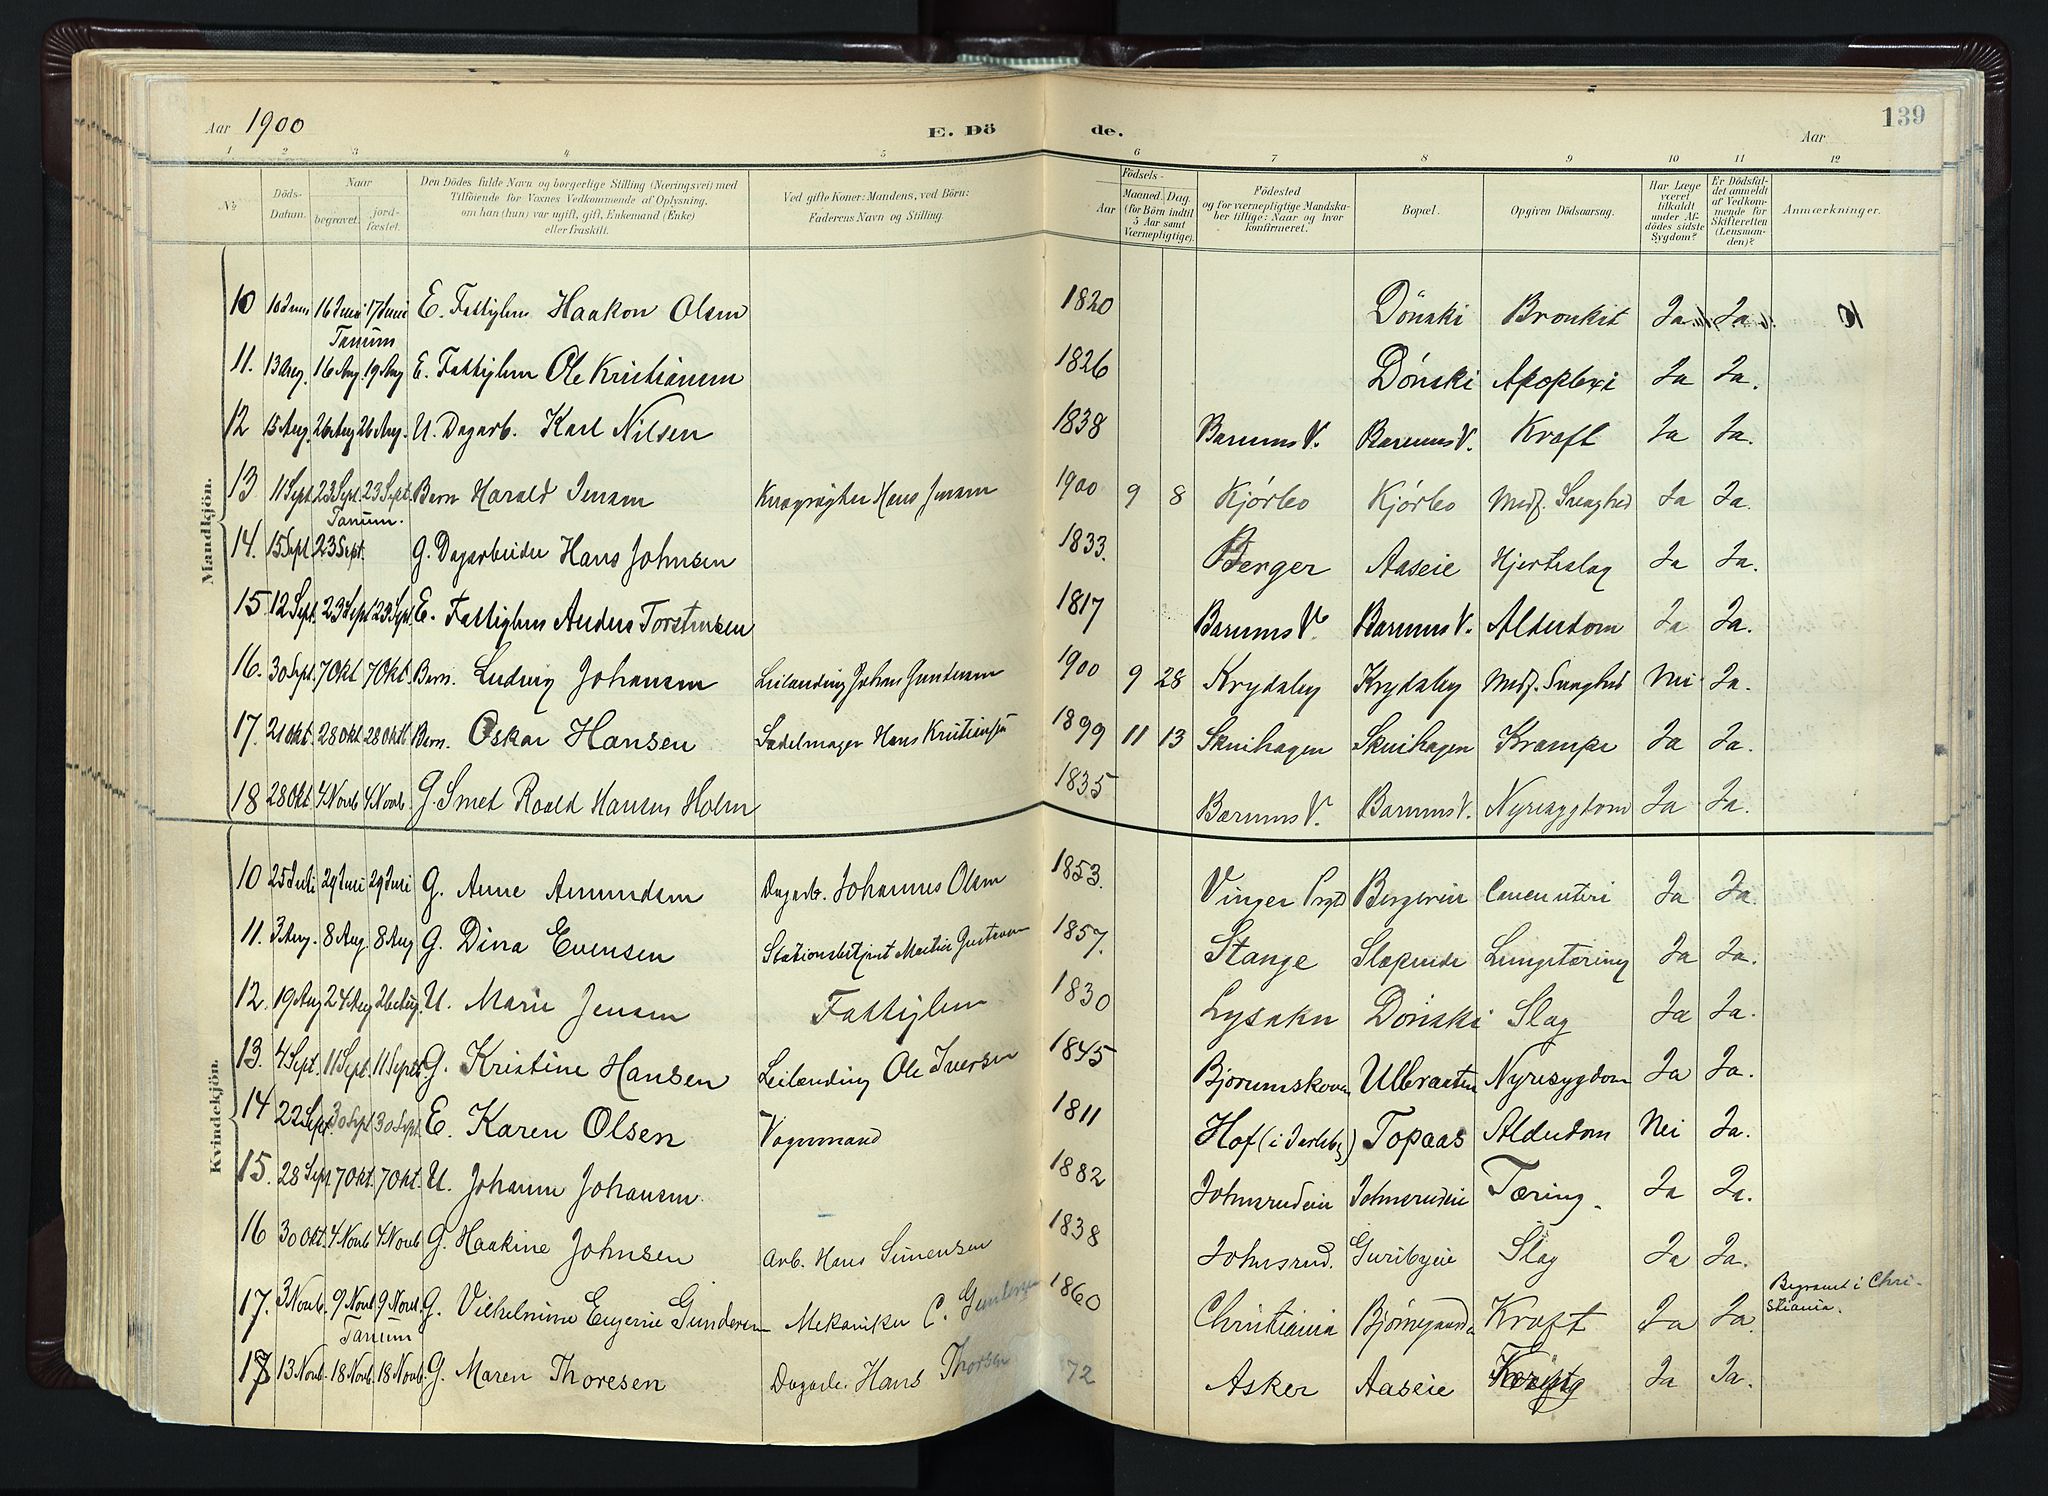 Aar 1900 E. Dö de. Aar 139
1 2 3 4 5 6 7 8 9 10 11 12
№ Döds-Datum. Naar begravet. jord-fæstet. Den Dödes fulde Navn og borgerlige Stilling (Næringsvei) med Tilföiende for Voxnes Vedkommende af Oplysning, om han (hun) var ugift, gift, Enkemand (Enke) eller fraskilt. Ved gifte Koner: Mandens, ved Börn: Faderens Navn og Stilling. Födsels- Aar Maaned. Dag. (for Börn indtil 5 Aar samt Værnepligtige). Födested og for værnepligtige Mandska-ber tillige: Naar og hvor konfirmeret. Bopæl. Opgiven Dödsaarsag. Har Læge været tilkaldt under Af-dödes sidste Sygdom? Er Dödsfal-det anmeldt af Vedkom-mende for Skifteretten (Lensman-den)? Anmærkninger.
Mandkjön.
10 10 Juni 16 Juni 17 Juni E. Fattiglem Haakon Olsen 1820 Dönski Bronkit Ja Ja
Tanum
11. 13 Aug. 16 Aug 19 Aug E. Fattiglem Ole Kristiansen 1826 Dönski Apoplexi Ja Ja.
12 15 Aug. 26 Aug 26 Aug. U. Dagarb. Karl Nilsen 1838 Bærums V. Bærums V. Kræft Ja Ja.
13 11 Sept 23 Sept. 23 Sept. Barn Harald Jensen Hans Jensen 1900 9 8 Kjørbo Kjørbo Medf. Svaghed Ja Ja.
Tanum.
14. 15 Sept 23 Sept. G. Dagarbeider Hans Johnsen 1833. Berger Aaseie Hjerteslag Ja Ja.
15 12 Sept. 23 Sept 23 Sept. E. Fattiglem Anders Torstensen 1817 Bærums V. Bærums V. Alderdom Ja Ja.
16. 30 Sept. 7 Okt 7 Okt. Barn. Ludvig Johansen Leilænding Johans Gundersen 1900 9 28 Krydsby Krydsby Medf. Svaghed Nei Ja.
17. 21 Okt. 28 Okt 28 Okt. Barn. Oskar Hansen Sadelmager Hans 1899 11 13 Skuihagen Skuihagen Krampe Ja Ja.
18 28 Okt 4 Novb 4 Novb. G. Smed Roald Hansen Holm 1835 Bærums V. Bærums V. Nyresygdom Ja Ja.
Kvindekjön.
10 25 Juli 29 Juni 29 Juni G. Anne Amundsen Dagarb. Johannes Olsen 1853. Vinger Prgd Bergereie Cancer uteri Ja Ja.
11. 3 Aug. 8 Aug. 8 Aug G. Dina Evensen Stationsbetjent Martin Gustavsen 1857. Stange Slæpende Lungetæring Ja Ja.
12. 19 Aug 24 Aug 26 Aug. U. Marie Jensen Fattiglem 1830 Lysaker Dönski Slag Ja Ja.
13. 4 Sept. 11 Sept. 11 Sept. G. Kristine Hansen Leilænding Ole Iversen 1845 Bjørumskoven Ulbraaten Nyresygdom Ja Ja.
14 22 Sept 30 Sept 30 Sept. E. Karen Olsen Vognmand 1811 Hof (i Jarlsbg) Topaas Alderdom Nei Ja.
15. 28 Sept 7 Okt. 7 Okt. U. Johanne Johansen. 1882 Johnsrudeie Johnsrudeie Tæring. Ja Ja.
16 30 Okt. 4 Novb 4 Novb G. Haakine Johnsen Arb. Hans Simensen 1838 Johnsrud. Guribyeie Slag Ja Ja.
17. 3 Novb. 9 Novb. 9 Novb. G. Vilhelmine Eugenie Gundersen Mekaniker C. Gundersen 1860 Christiania Bjørnegaard Kræft Ja Ja. Begravet i Chri-
stiania.
Tanum
18 13 Novb. 18 Novb. 18 Novb. G. Maren Thoresen Dagarb. Hans Thorsen 72 Asker Aaseie Ja Ja.